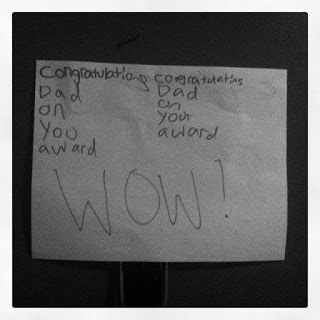 Congratulations
Dad
on
You
award
congratulatins
Dad
on
your
award
WOW!